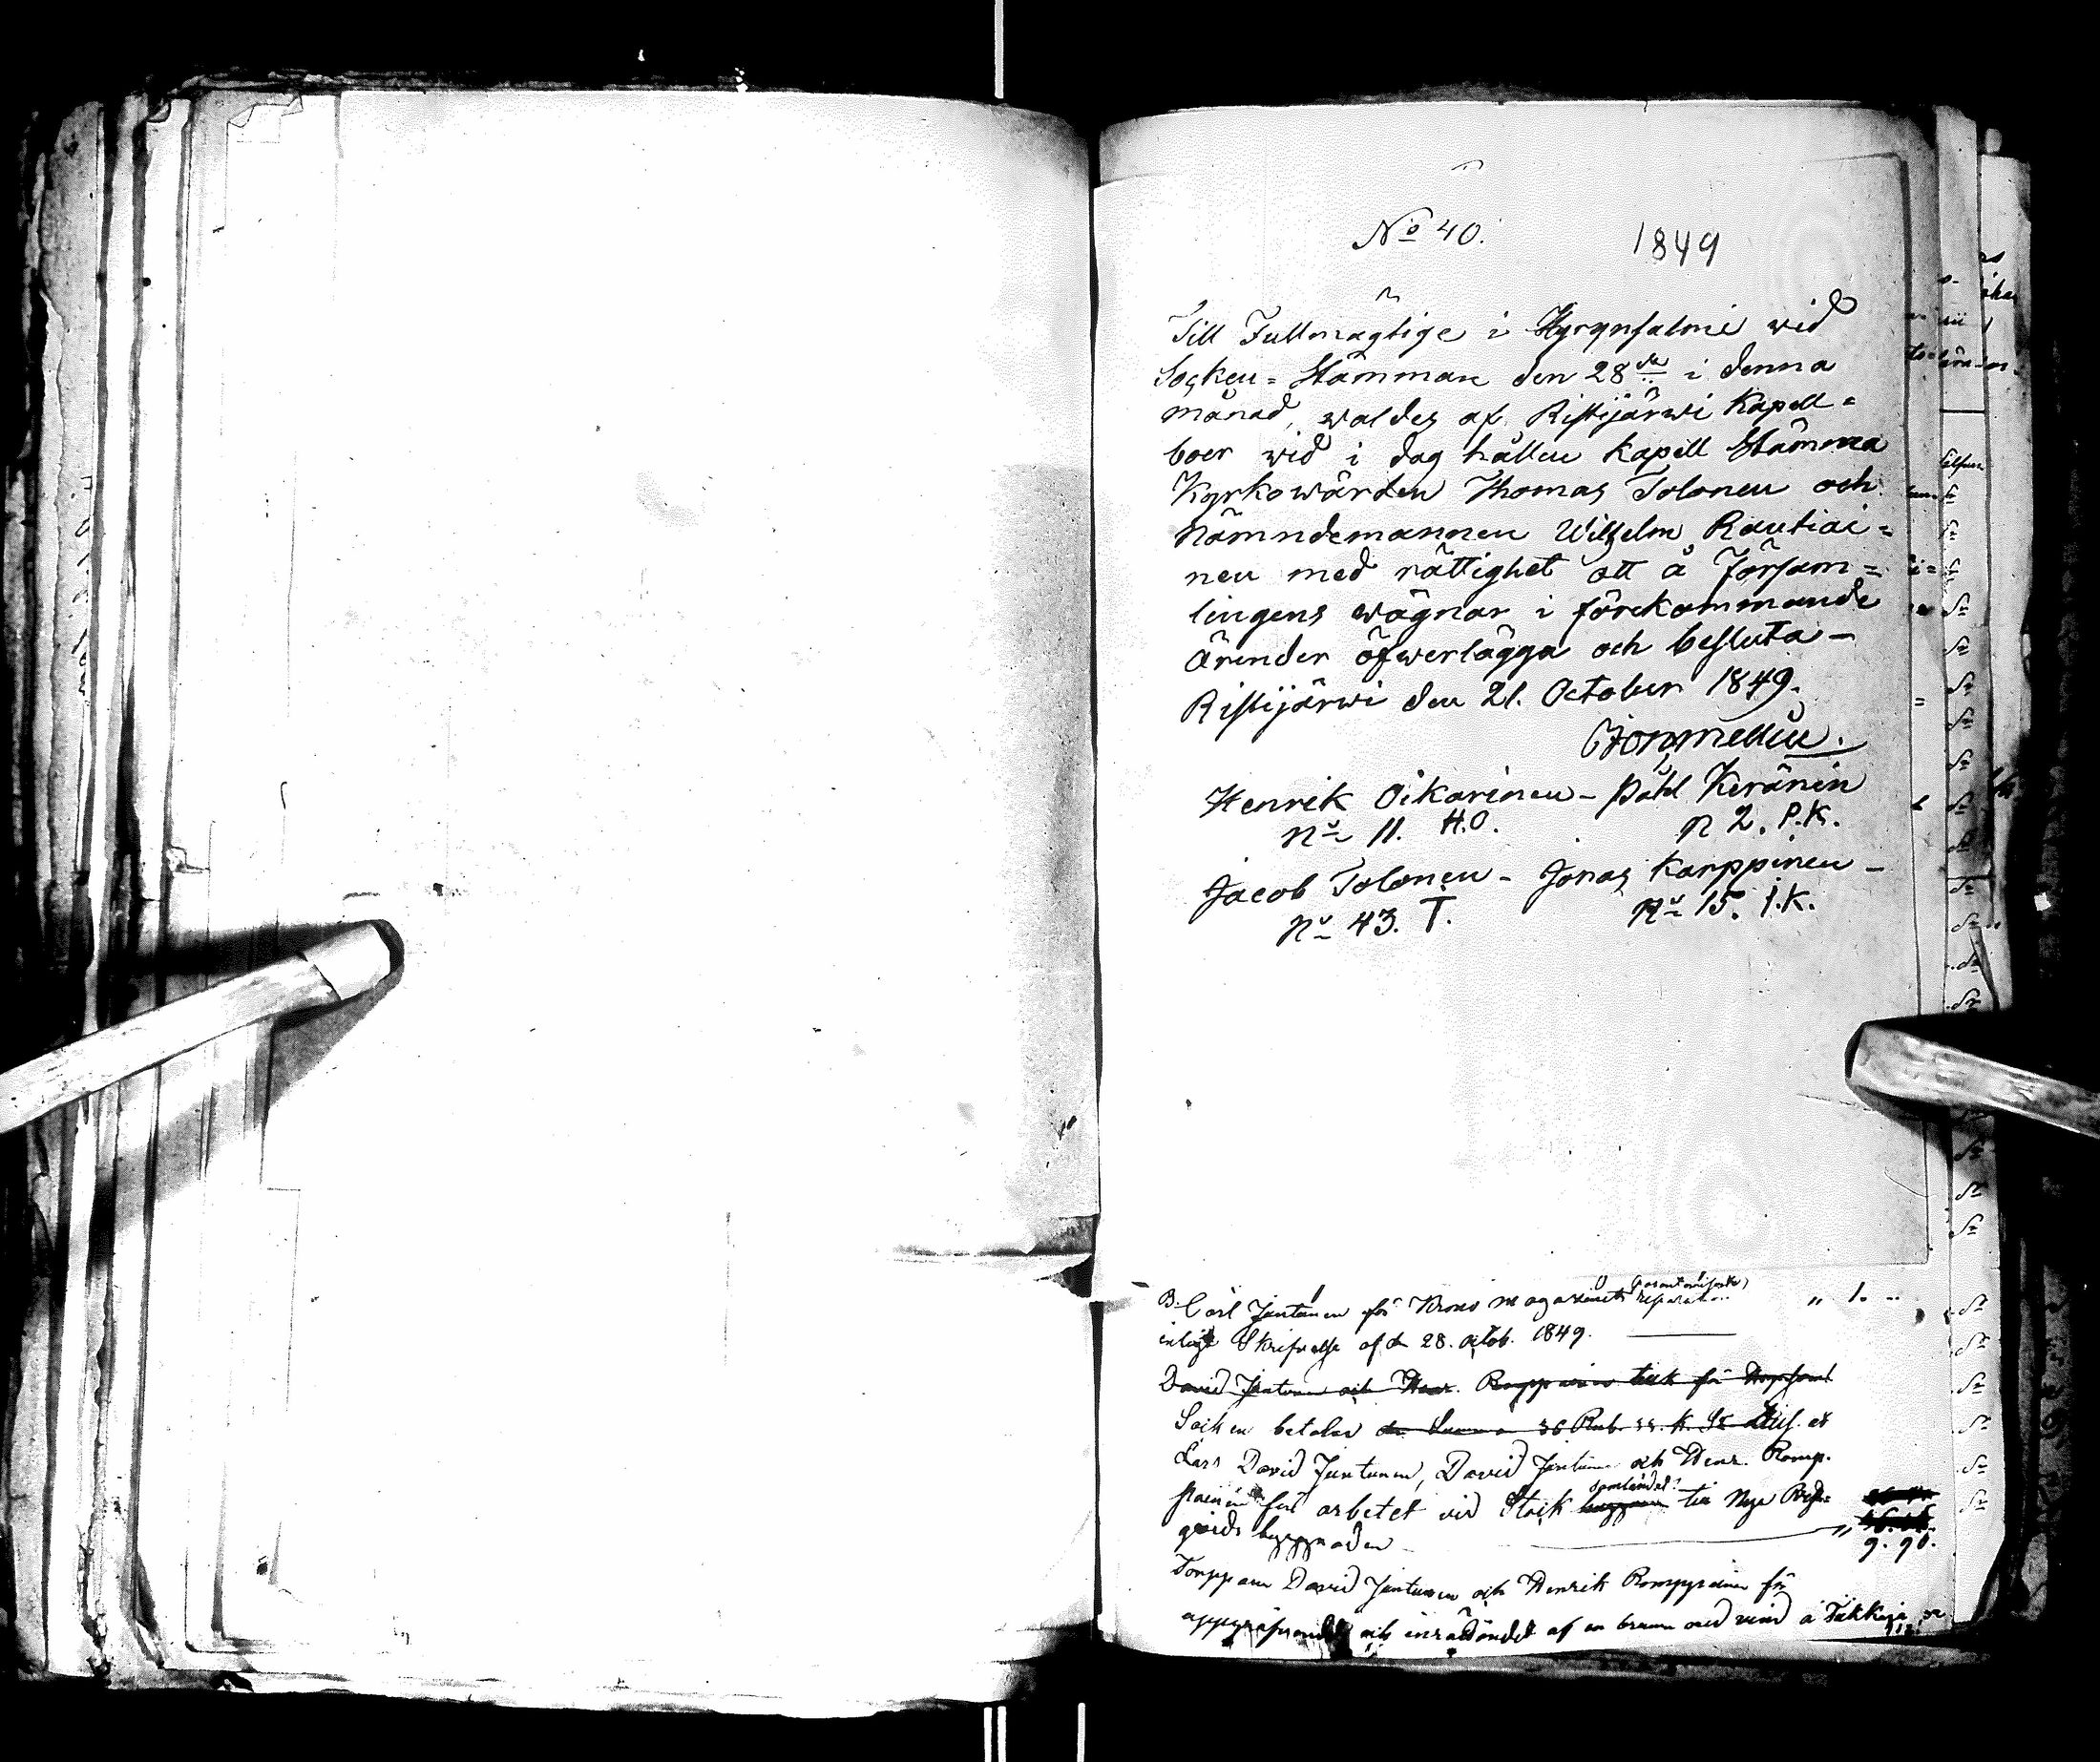 No 40. 1849
Till Fullmägtige i Hyrynsalmi wid
Socken-Stämman den 28de i denna
månad, waldes af Ristijärwi Kapell=
boer wid i dag hållen Kapell Stämma
Kyrkowärden Thomas Tolonen och
Nämndemannen Wilhelm Rautiai=
nen med rättighet att å Försam=
lingens wägnar i förekommande
Ärender öfwerlägga och besluta –
Ristijärwi den 21. October 1849.
Henrik Oikarinen – Påhl Keränen
No 11. H.O. N 2. P.K.
Jacob Tolonen – Jonas Karppinen –
No 43. T. No 15. I.K.
Carl Juntunen för Krono magasinets reparation „ 1.
enligt Skrifvelse af d. 28. Octob. 1849.
David Juntunen och Henr. Romppainen för
Socken betalar
Lars David Juntunen, David Juntunen och Henr. Romp=
painen för arbetet vid Stock till Nya Prest=
gårds byggnaden „ 9. 90.
Torppare David Juntunen och Henrik Romppainen för
uppgräfvandet och inrättandet af en brunn med vind å